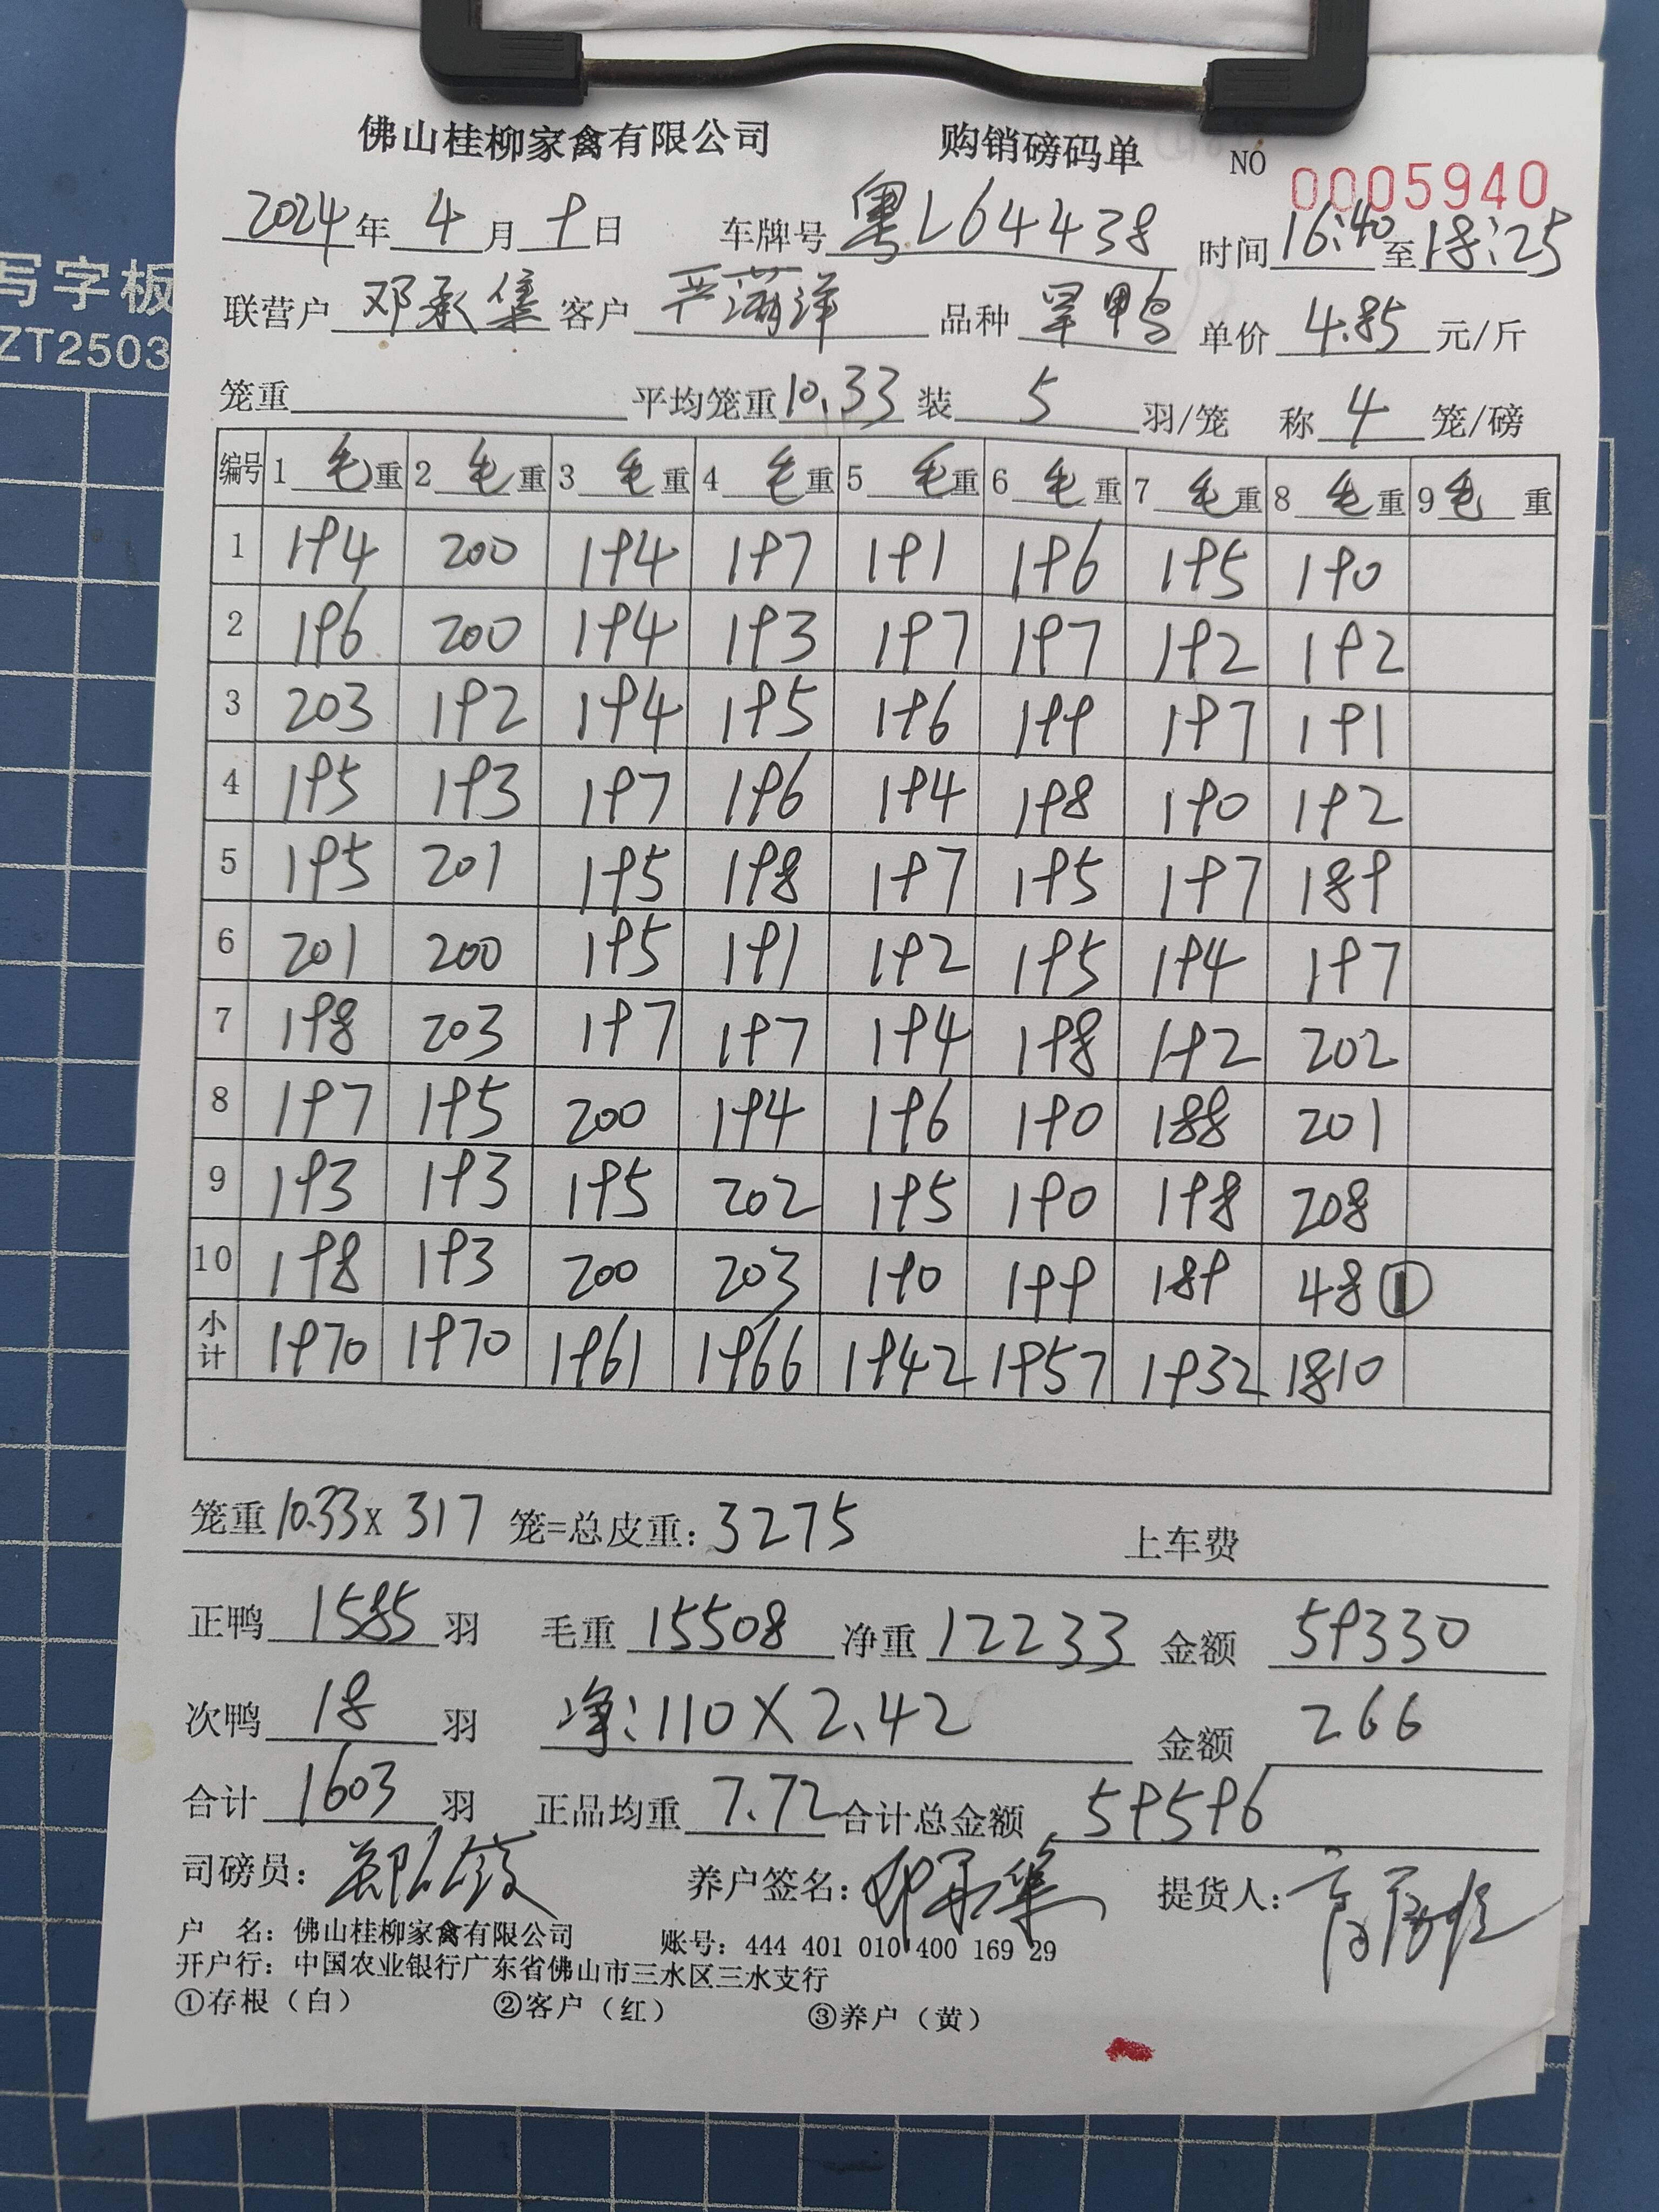 佛山桂柳家禽有限公司 购销磅码单 NO 0005940
2024年 4 月 9 日 车牌号 粤L64438 时间 16:40 至 18:25
联营户 邓承集 客户 严满洋 品种 罕鸭 单价 4.85 元/斤
笼重 平均笼重 10.33 装 5 羽/笼 称 4 笼/磅
编号 1 毛重 2 毛重 3 毛重 4 毛重 5 毛重 6 毛重 7 毛重 8 毛重 9 毛重
1 194 200 194 197 191 196 195 190
2 196 200 194 193 197 197 192 192
3 203 192 194 195 196 199 197 191
4 195 193 197 196 194 198 190 192
5 195 201 195 198 197 195 197 189
6 201 200 195 191 192 195 194 197
7 198 203 197 197 194 198 192 202
8 197 195 200 194 196 190 188 201
9 193 193 195 202 195 190 198 208
10 198 193 200 203 190 199 189 48 ①
小计 1970 1970 1961 1966 1942 1957 1932 1810
笼重 10.33 x 317 笼=总皮重: 3275 上车费
正鸭 1585 羽 毛重 15508 净重 12233 金额 59330
次鸭 18 羽 净: 110 X 2.42 金额 266
合计 1603 羽 正品均重 7.72 合计总金额 59596
司磅员: 养户签名: 邓承集 提货人:
户 名: 佛山桂柳家禽有限公司 账号: 444 401 010 400 169 29
开户行: 中国农业银行广东省佛山市三水区三水支行
①存根（白） ②客户（红） ③养户（黄）
写字板
ZT2503